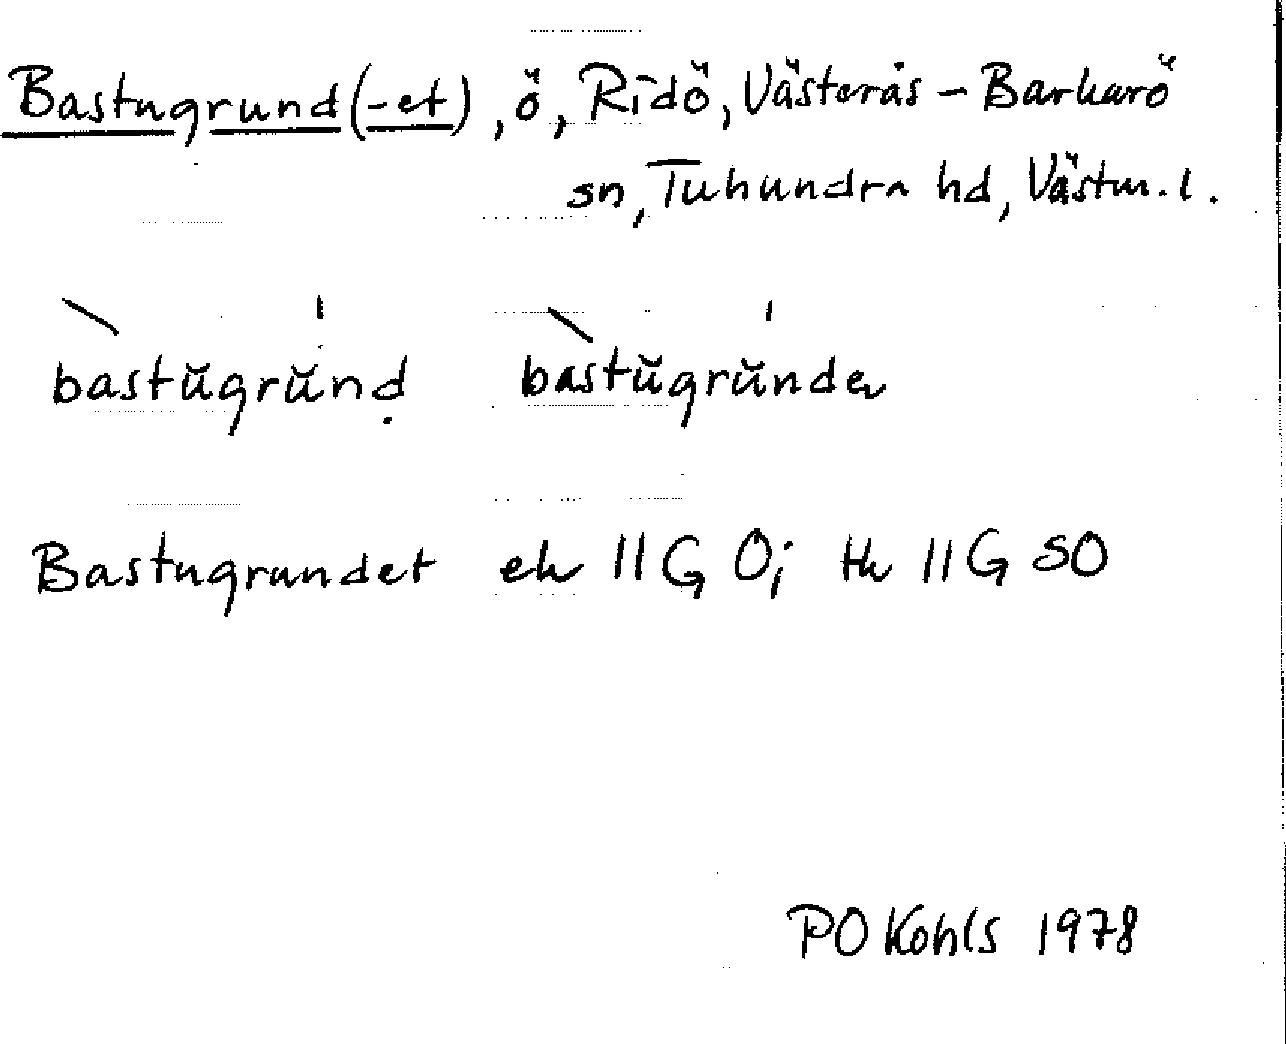 Bastugrund(-et), ö, Ridö, Västerås-Barkarö
sn, Tuhundra hd, Västm.l.
bastŭgrŭnḍ bastŭgrŭnde
Bastugrundet ek 11G O; tk 11G SO
PO Kohls 1978